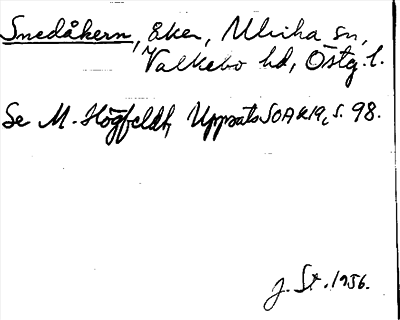 Snedåkern, åker, Ulrika sn,
Valkebo hd, Östg. l.
Se M. Högfeldt, Uppsats SOAR19, s. 98.
J. St. 1956.